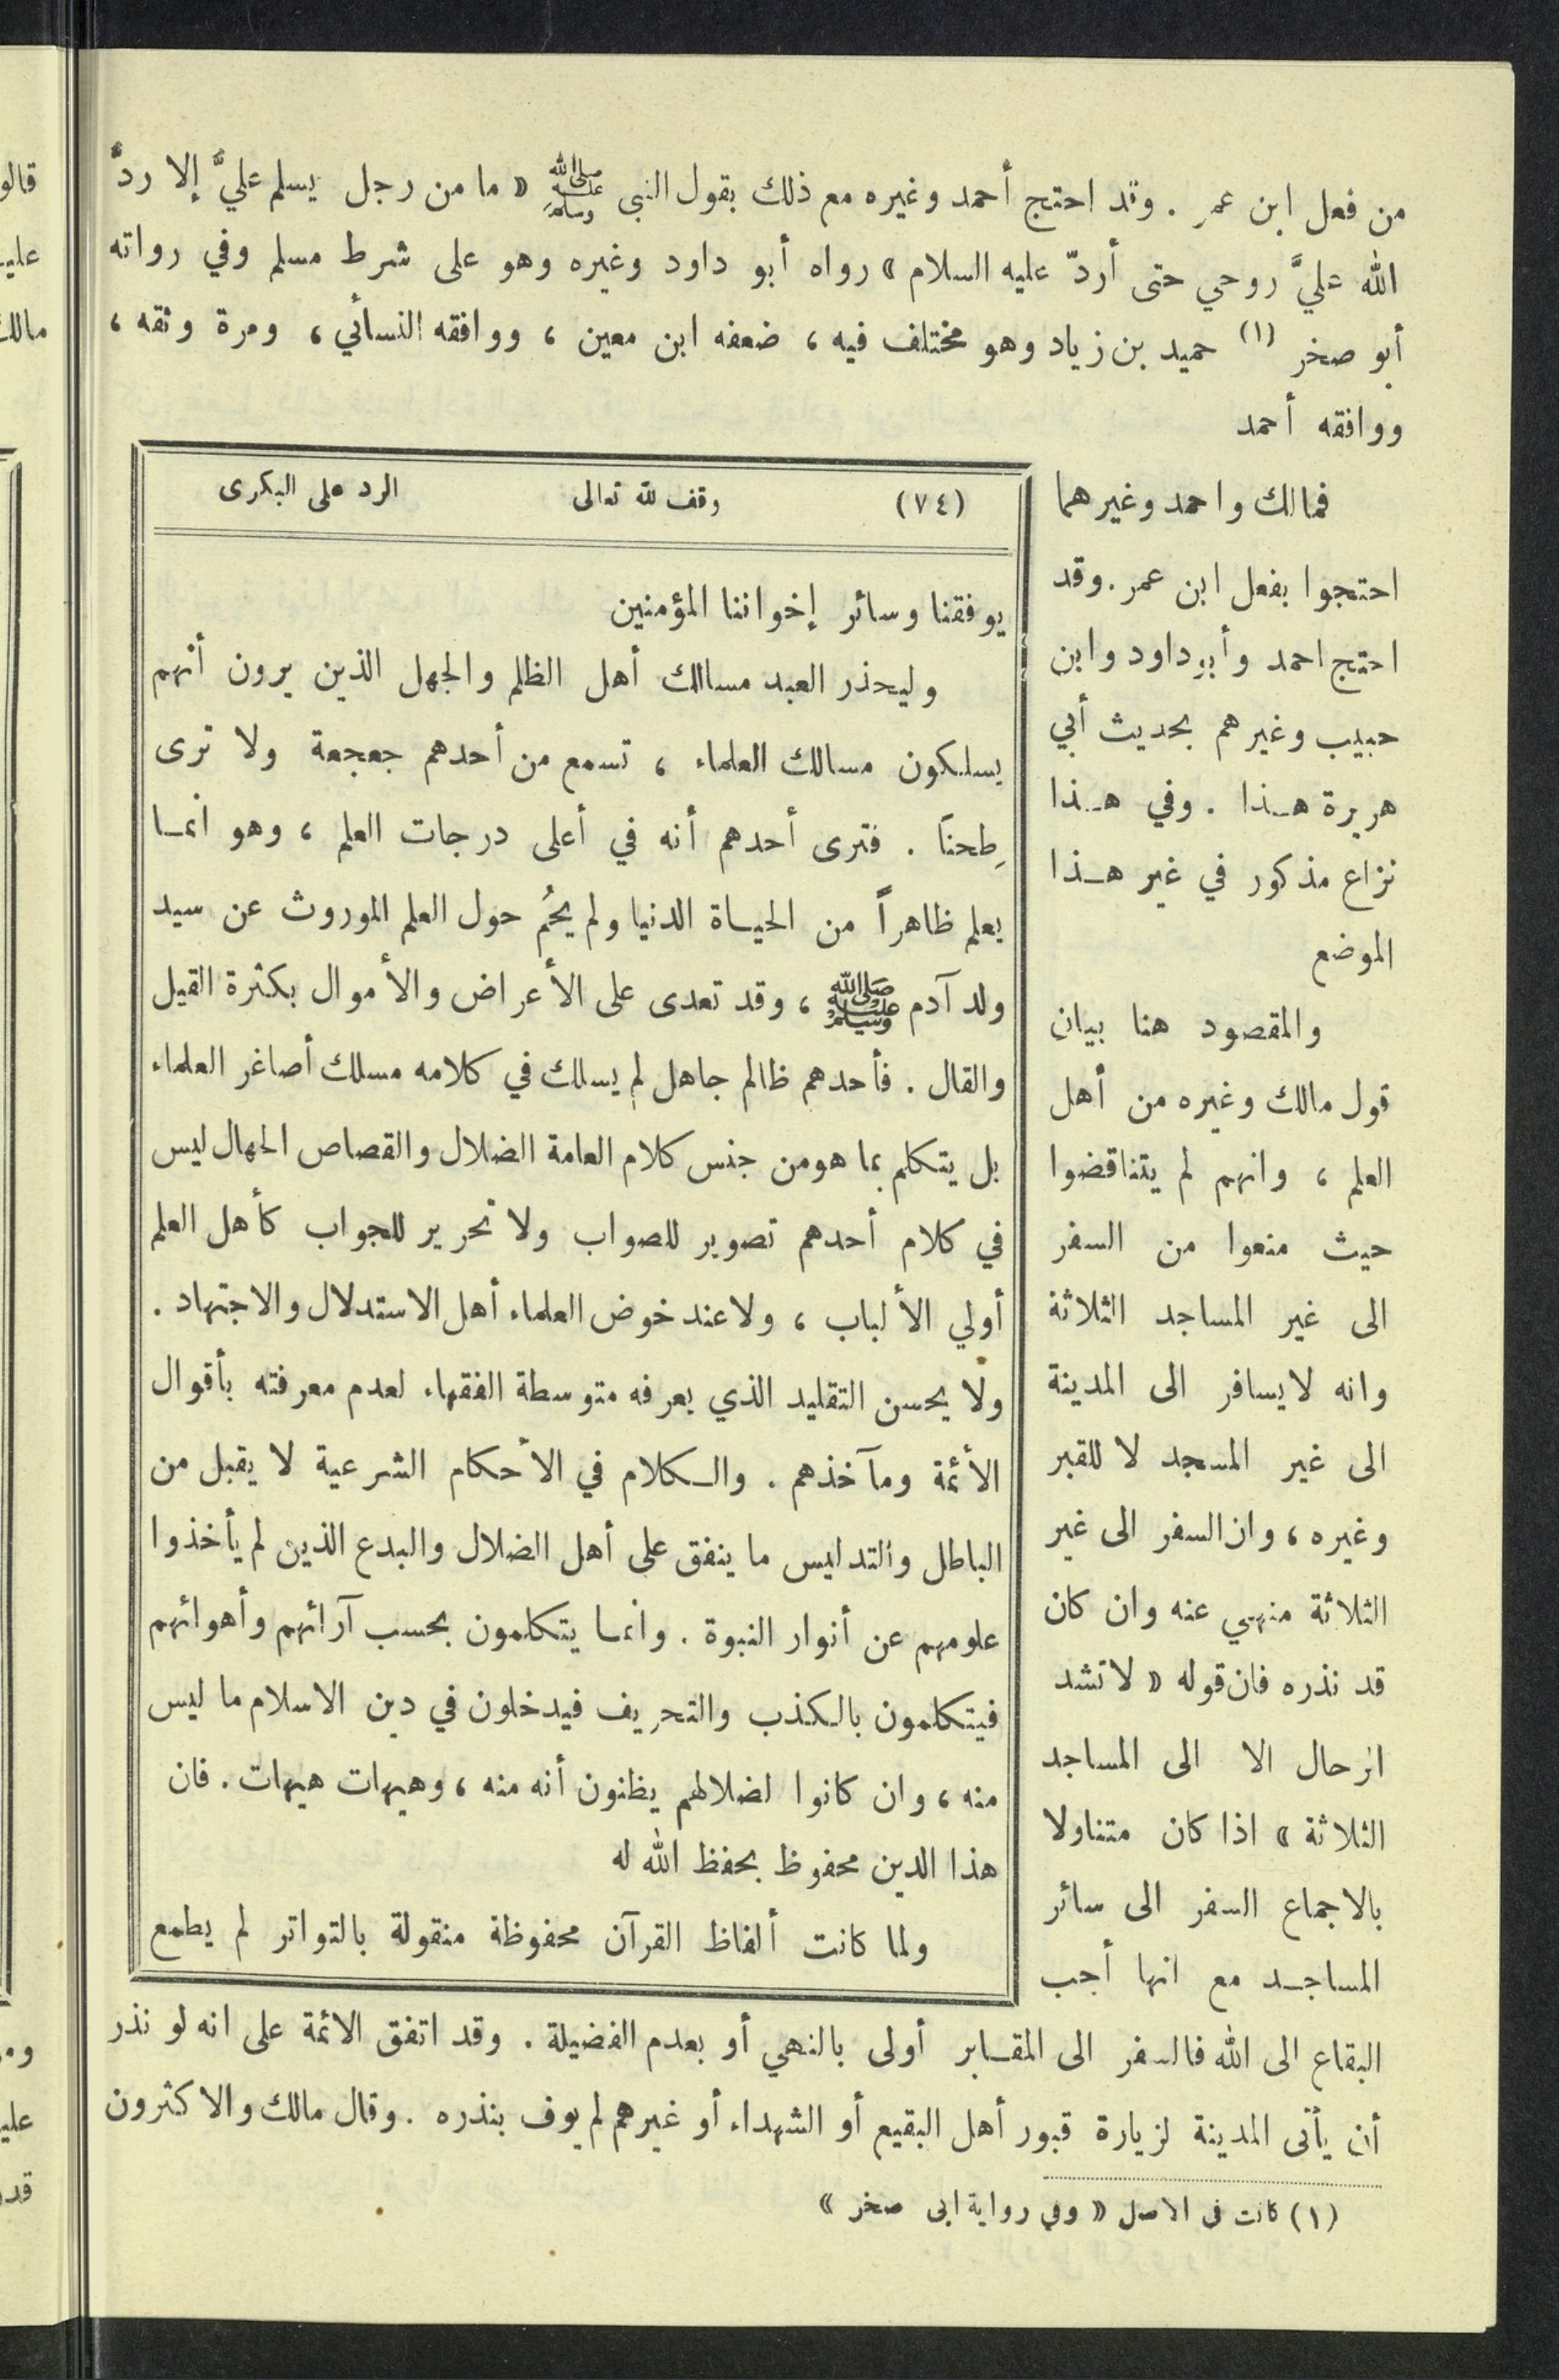 من فعل ابن عمر . وقد احتج أحمد وغيره مع ذلك بقول النبى ﷺ « ما من رجل يسلم عليَّ إلا ردَّ
الله عليَّ روحي حتى أردّ عليه السلام » رواه أبو داود وغيره وهو على شرط مسلم وفي رواته
أبو صخر (١) حميد بن زياد وهو مختلف فيه ، ضعفه ابن معين ، ووافقه النسائي ، ومرة وثقه ،
ووافقه أحمد
فمالك واحمد وغيرهما
احتجوا بفعل ابن عمر . وقد
احتج احمد وأبو داود وابن
حبيب وغيرهم بحديث أبي
هريرة هـذا . وفي هـذا
نزاع مذكور في غير هـذا
الموضع
والمقصود هنا بيان
قول مالك وغيره من أهل
العلم ، وانهم لم يتناقضوا
حيث منعوا من السفر
الى غير المساجد الثلاثة
وانه لا يسافر الى المدينة
الى غير المسجد لا للقبر
وغيره ، وان السفر الى غير
الثلاثة منهي عنه وان كان
قد نذره فان قوله « لا تشد
الرحال الا الى المساجد
الثلاثة » اذا كان متناولا
بالاجماع السفر الى سائر
المساجـد مع انها أحب
(٧٤) وقف لله تعالى الرد على البكرى
يوفقنا وسائر إخواننا المؤمنين
وليحذر العبد مسالك أهل الظلم والجهل الذين يرون أنهم
يسلكون مسالك العلماء ، تسمع من أحدهم جعجعة ولا ترى
طِحناً . فترى أحدهم أنه في أعلى درجات العلم ، وهو انمـا
يعلم ظاهراً من الحيـاة الدنيا ولم يحُم حول العلم الموروث عن سيد
ولد آدم ﷺ ، وقد تعدى على الأعراض والأموال بكثرة القيل
والقال . فأحدهم ظالم جاهل لم يسلك في كلامه مسلك أصاغر العلماء
بل يتكلم بما هو من جنس كلام العامة الضلال والقصاص الجهال ليس
في كلام أحدهم تصوير للصواب ولا تحرير للجواب كأهل العلم
أولي الألباب ، ولا عند خوض العلماء أهل الاستدلال والاجتهاد .
ولا يحسن التقليد الذي يعرفه متوسطة الفقهاء لعدم معرفته بأقوال
الأئمة ومآخذهم . والـكلام في الأحكام الشرعية لا يقبل من
الباطل والتدليس ما ينفق على أهل الضلال والبدع الذين لم يأخذوا
علومهم عن أنوار النبوة . وانمـا يتكلمون بحسب آرائهم وأهوائهم
فيتكلمون بالـكذب والتحريف فيدخلون في دين الاسلام ما ليس
منه ، وان كانوا لضلالهم يظنون أنه منه ، وهيهات هيهات . فان
هذا الدين محفوظ بحفظ الله له
ولما كانت ألفاظ القرآن محفوظة منقولة بالتواتر لم يطمع
البقاع الى الله فالسفر الى المقـابر أولى بالنهي أو بعدم الفضيلة . وقد اتفق الائمة على انه لو نذر
أن يأتى المدينة لزيارة قبور أهل البقيع أو الشهداء أو غيرهم لم يوف بنذره . وقال مالك والاكثرون
(١) كانت فى الاصل « وفي رواية ابى صخر »